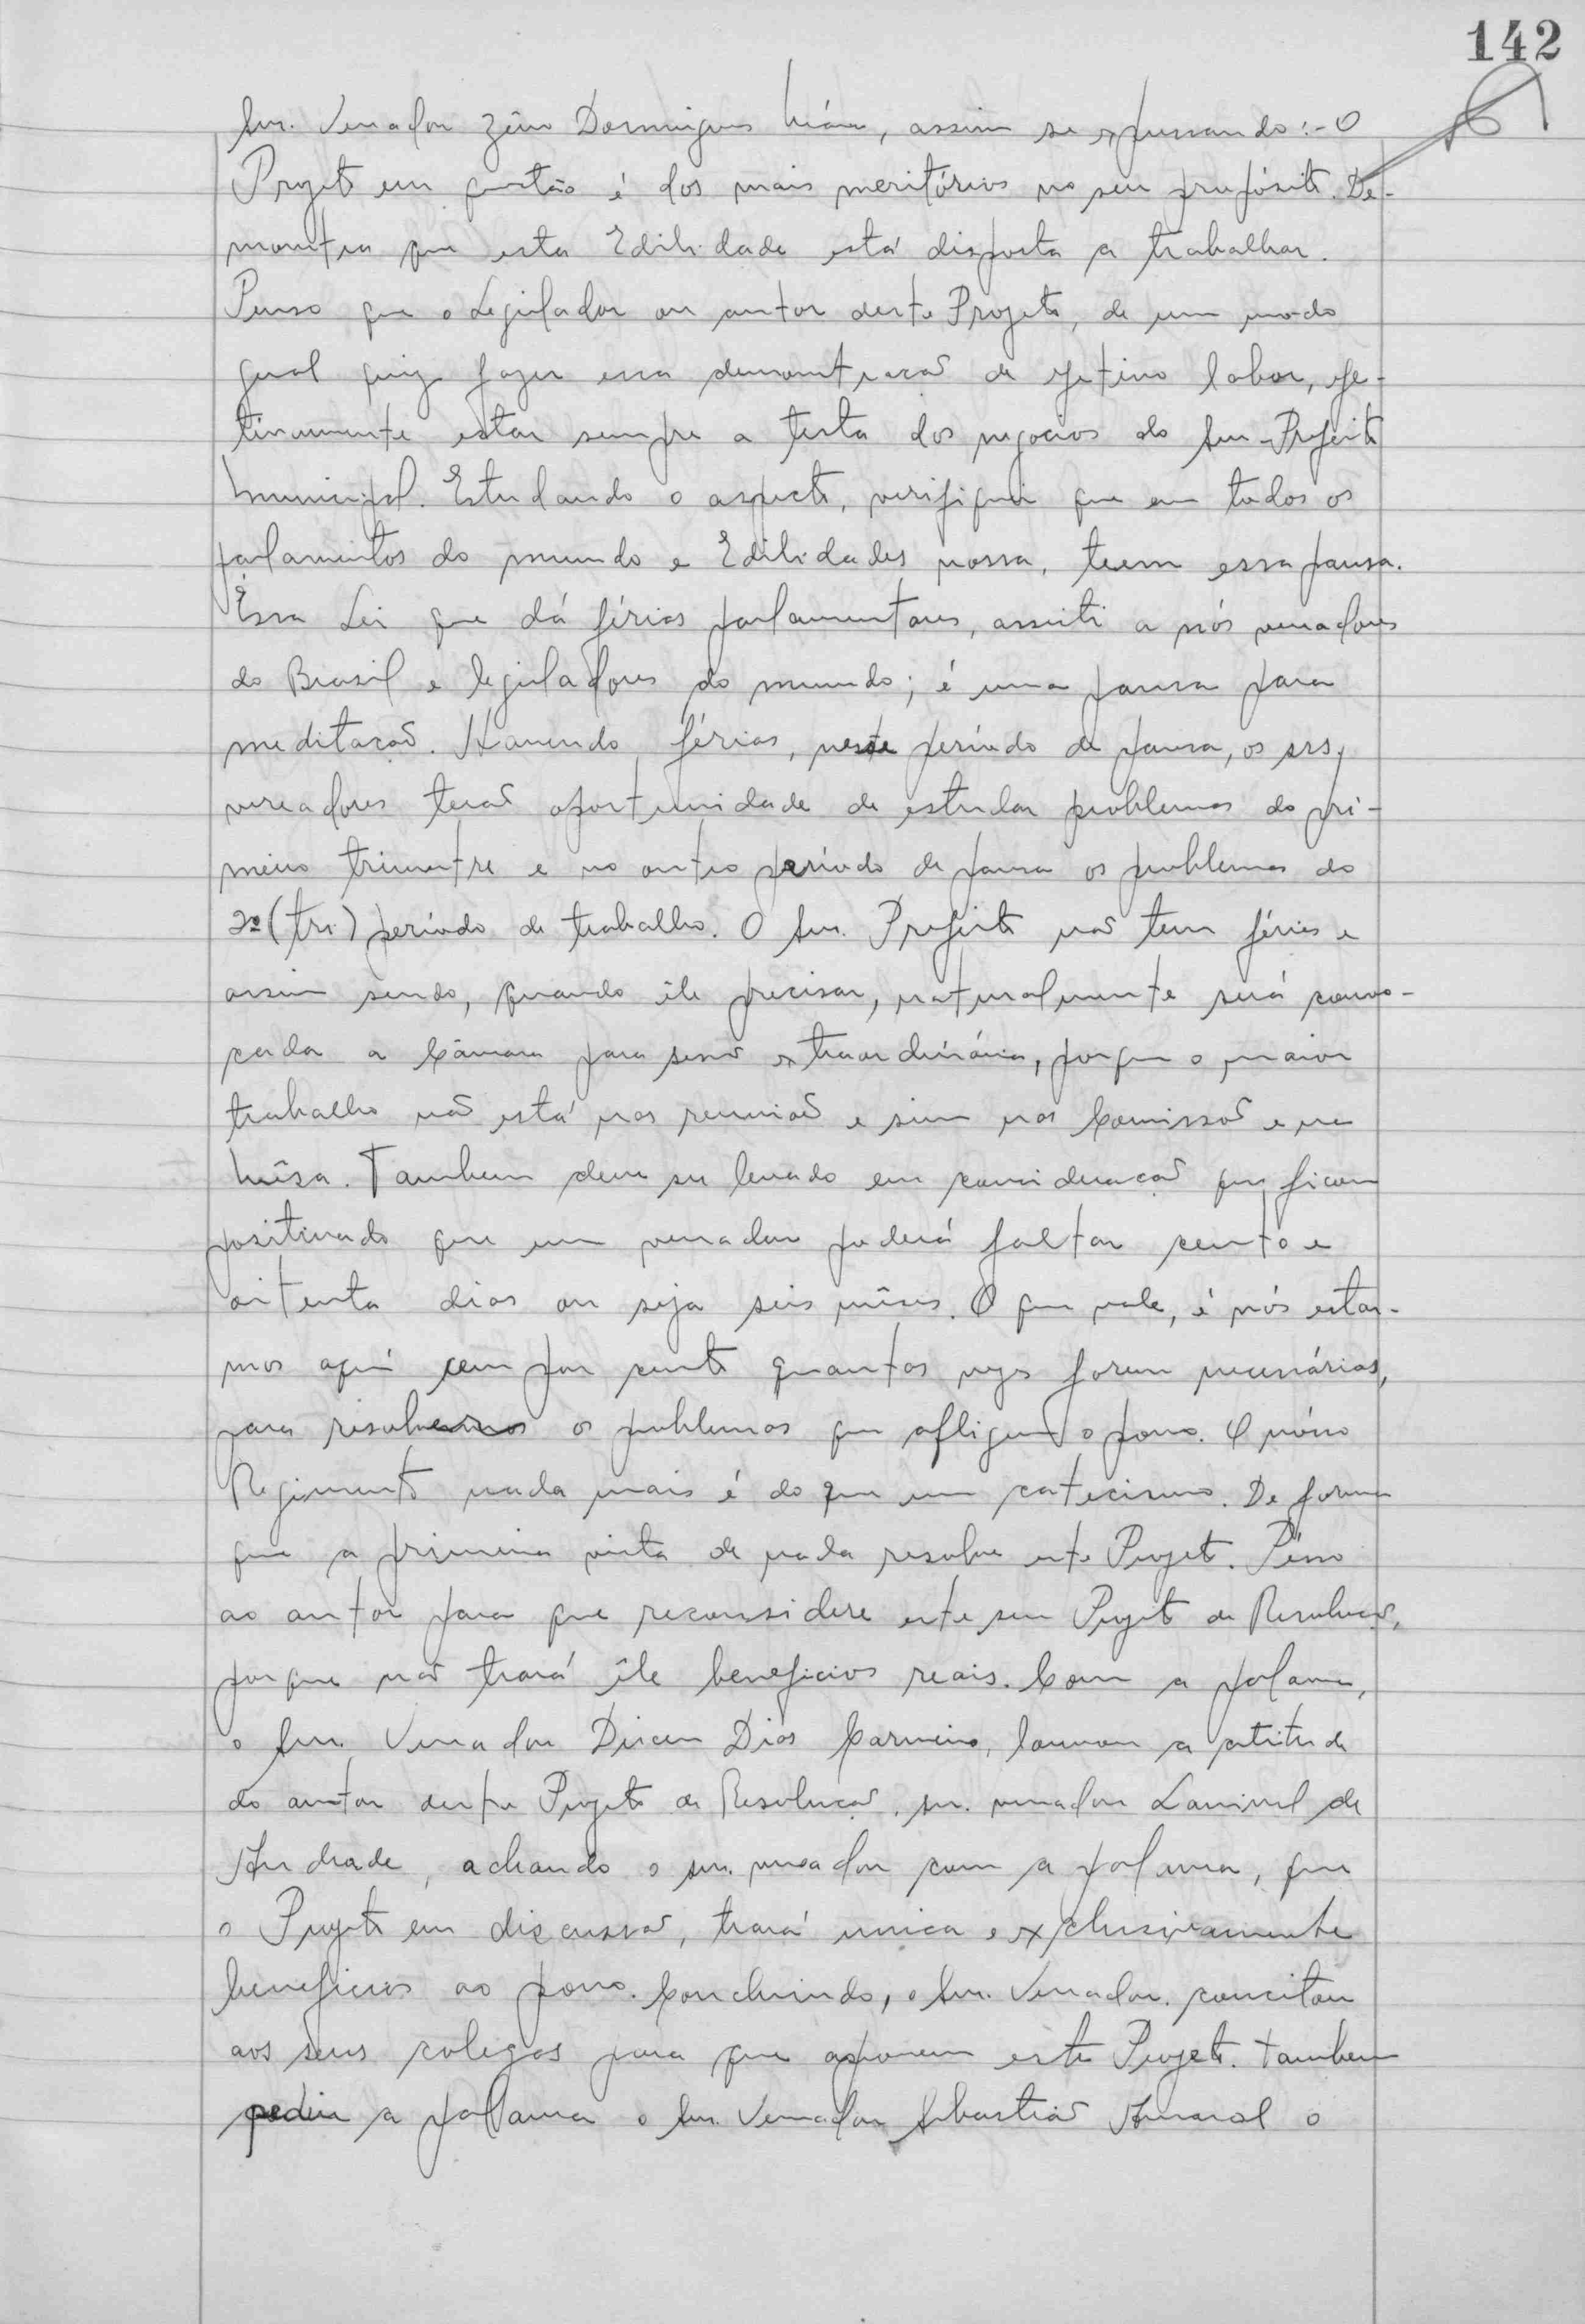 142
Snr. Vereador Zêno Domingues Maia, assim se expressando:- O
Projeto em questão é dos mais meritórios no seu propósito. De-
monstra que esta Edilidade está disposta a trabalhar.
Penso que o Legislador ou autor deste Projeto, de um modo
geral quiz fazer essa demonstração de efetivo labor, efe-
tivamente estar sempre a testa dos negocios do Snr. Prefeito
Municipal. Estudando o aspecto, verifiquei que em todos os
parlamentos do mundo e Edilidades nossa, teem essa pausa.
Essa Lei que dá férias parlamentares, assiste a nós vereadores
do Brasil e legisladores do mundo; é uma pausa para
meditação. Havendo férias, neste período de pausa, os srs.
vereadores terão oportunidade de estudar problemas do pri-
meiro trimestre e no outro período de pausa os problemas do
2º (tri) período de trabalho. O Snr. Prefeito não tem férias e
assim sendo, quando êle precisar, naturalmente será convo-
cada a Câmara para sessão extraordinária, porque o maior
trabalho não está nas reuniões e sim nas Comissão e na
Mêsa. Tambem deve ser levado em consideração que ficou
positivado que um vereador poderá faltar cento e
oitenta dias ou seja seis mêses. O que vale, é nós estar-
mos aqui cem por cento quantas vezes forem necessárias,
para resolvermos os problemas que afligem o povo. O nósso
Regimento nada mais é do que um catecismo. De forma
que a primeira vista de nada resolve este Projeto. Pésso
ao autor para que reconsidere este seu Projeto de Resolução,
porque não trará êle beneficios reais. Com a palavra,
o Snr. Vereador Dirceu Dias Carneiro, louvou a atitude
do autor deste Projeto de Resolução, snr. vereador Lourival de
Andrade, achando o snr. vereador com a palavra, que
o Projeto em discussão, trará unica e exclusivamente
beneficios ao povo. Concluindo, o Snr. Vereador concitou
aos seus colegas para que aprovem este Projeto. Tambem
pediu a palavra o Snr. Vereador Sebastião Amaral o